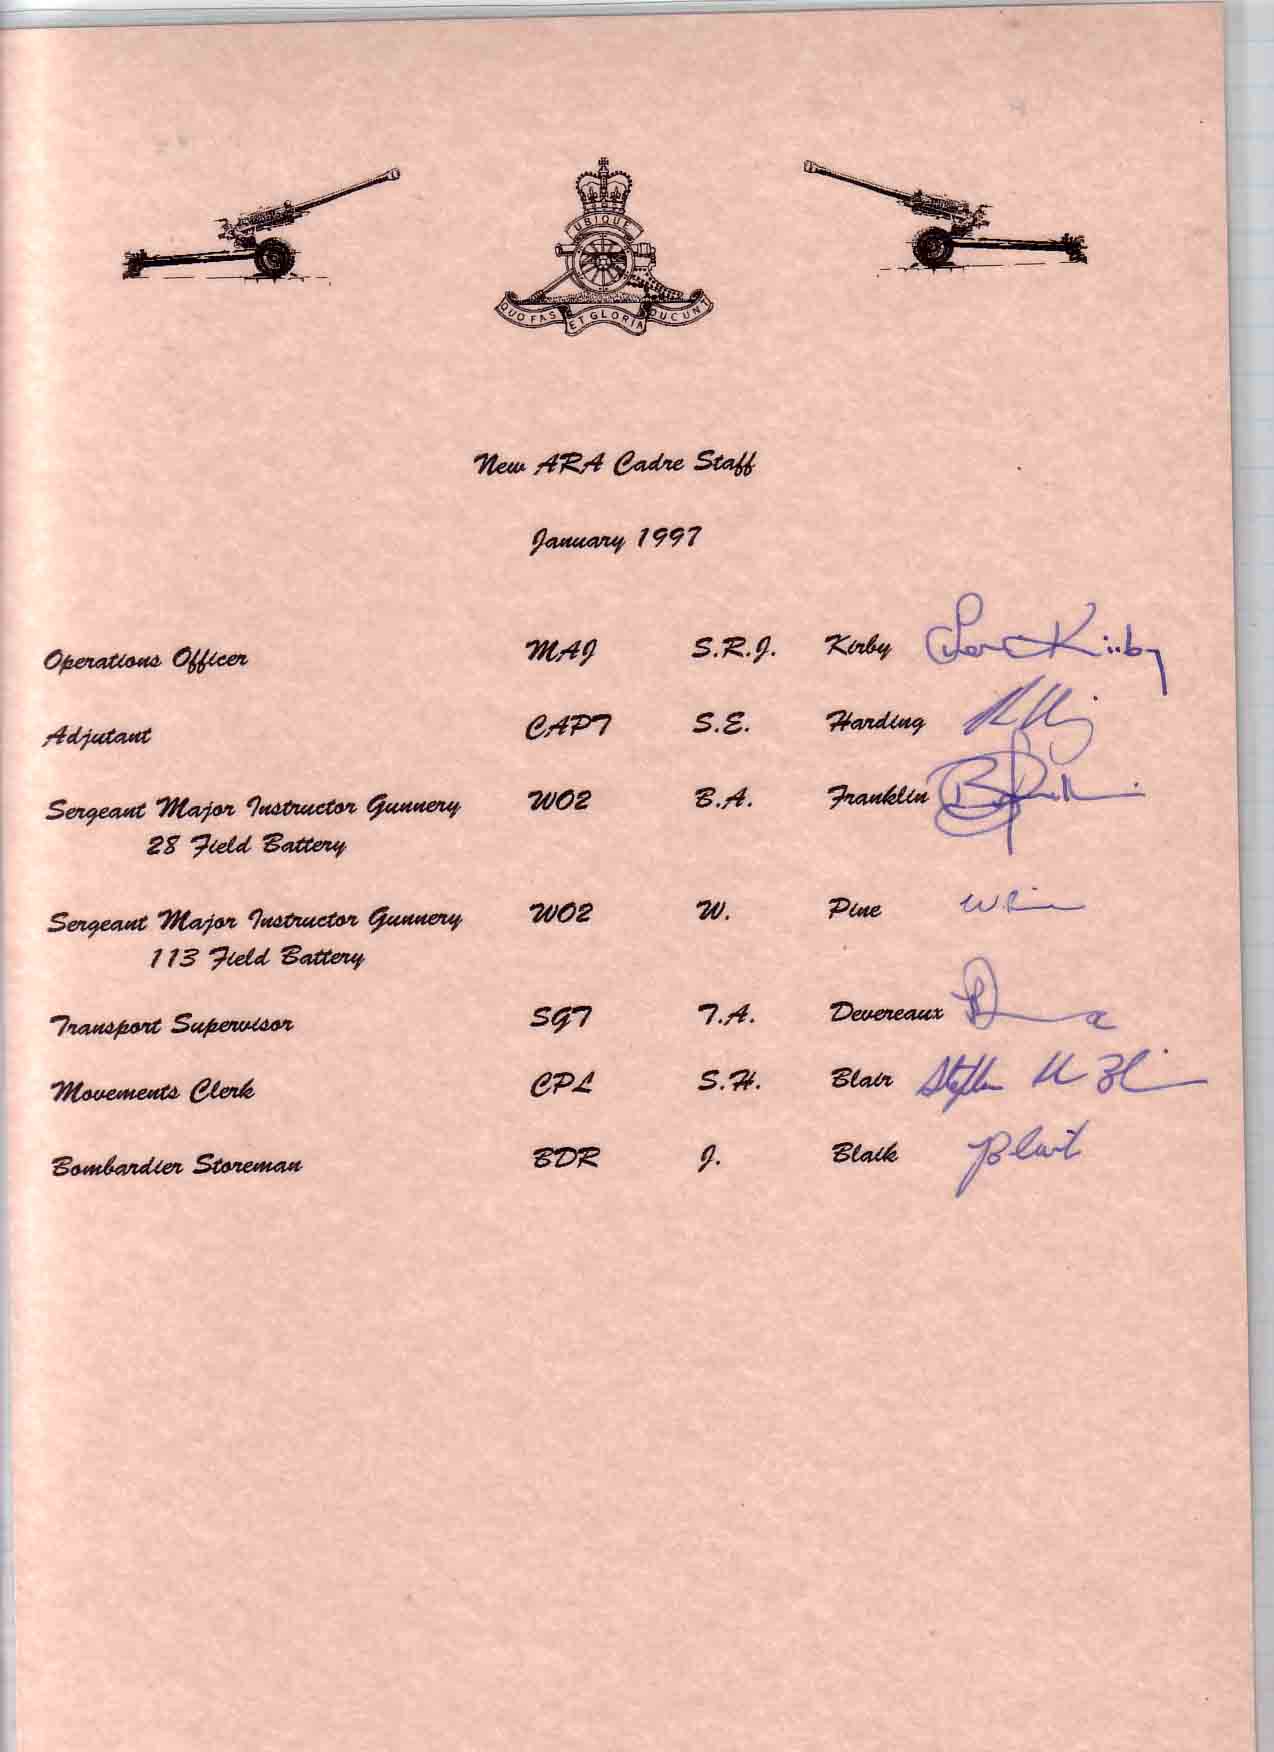 UBIQUE
QUO FAS ET GLORIA DUCUNT
New ARA Cadre Staff
January 1997
Operations Officer MAJ S.R.J. Kirby Kirby
Adjutant CAPT S.E. Harding
Sergeant Major Instructor Gunnery WO2 B.A. Franklin
28 Field Battery
Sergeant Major Instructor Gunnery WO2 W. Pine
113 Field Battery
Transport Supervisor SGT T.A. Devereaux
Movements Clerk CPL S.H. Blair
Bombardier Storeman BDR J. Blaik